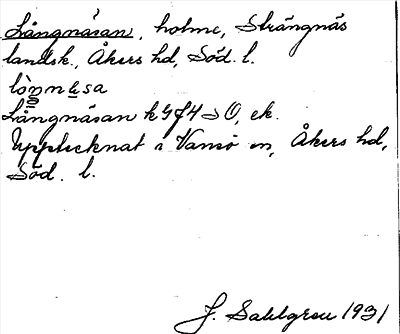 Långnäsan, holme, Strängnäs
landsk., Åkers hd, Söd. l.
lòŋnʉsa
Långnäsan k 974 SO, ek.
Upptecknat i Vansö sn, Åkers hd,
Söd. l.
J. Sahlgren 1931